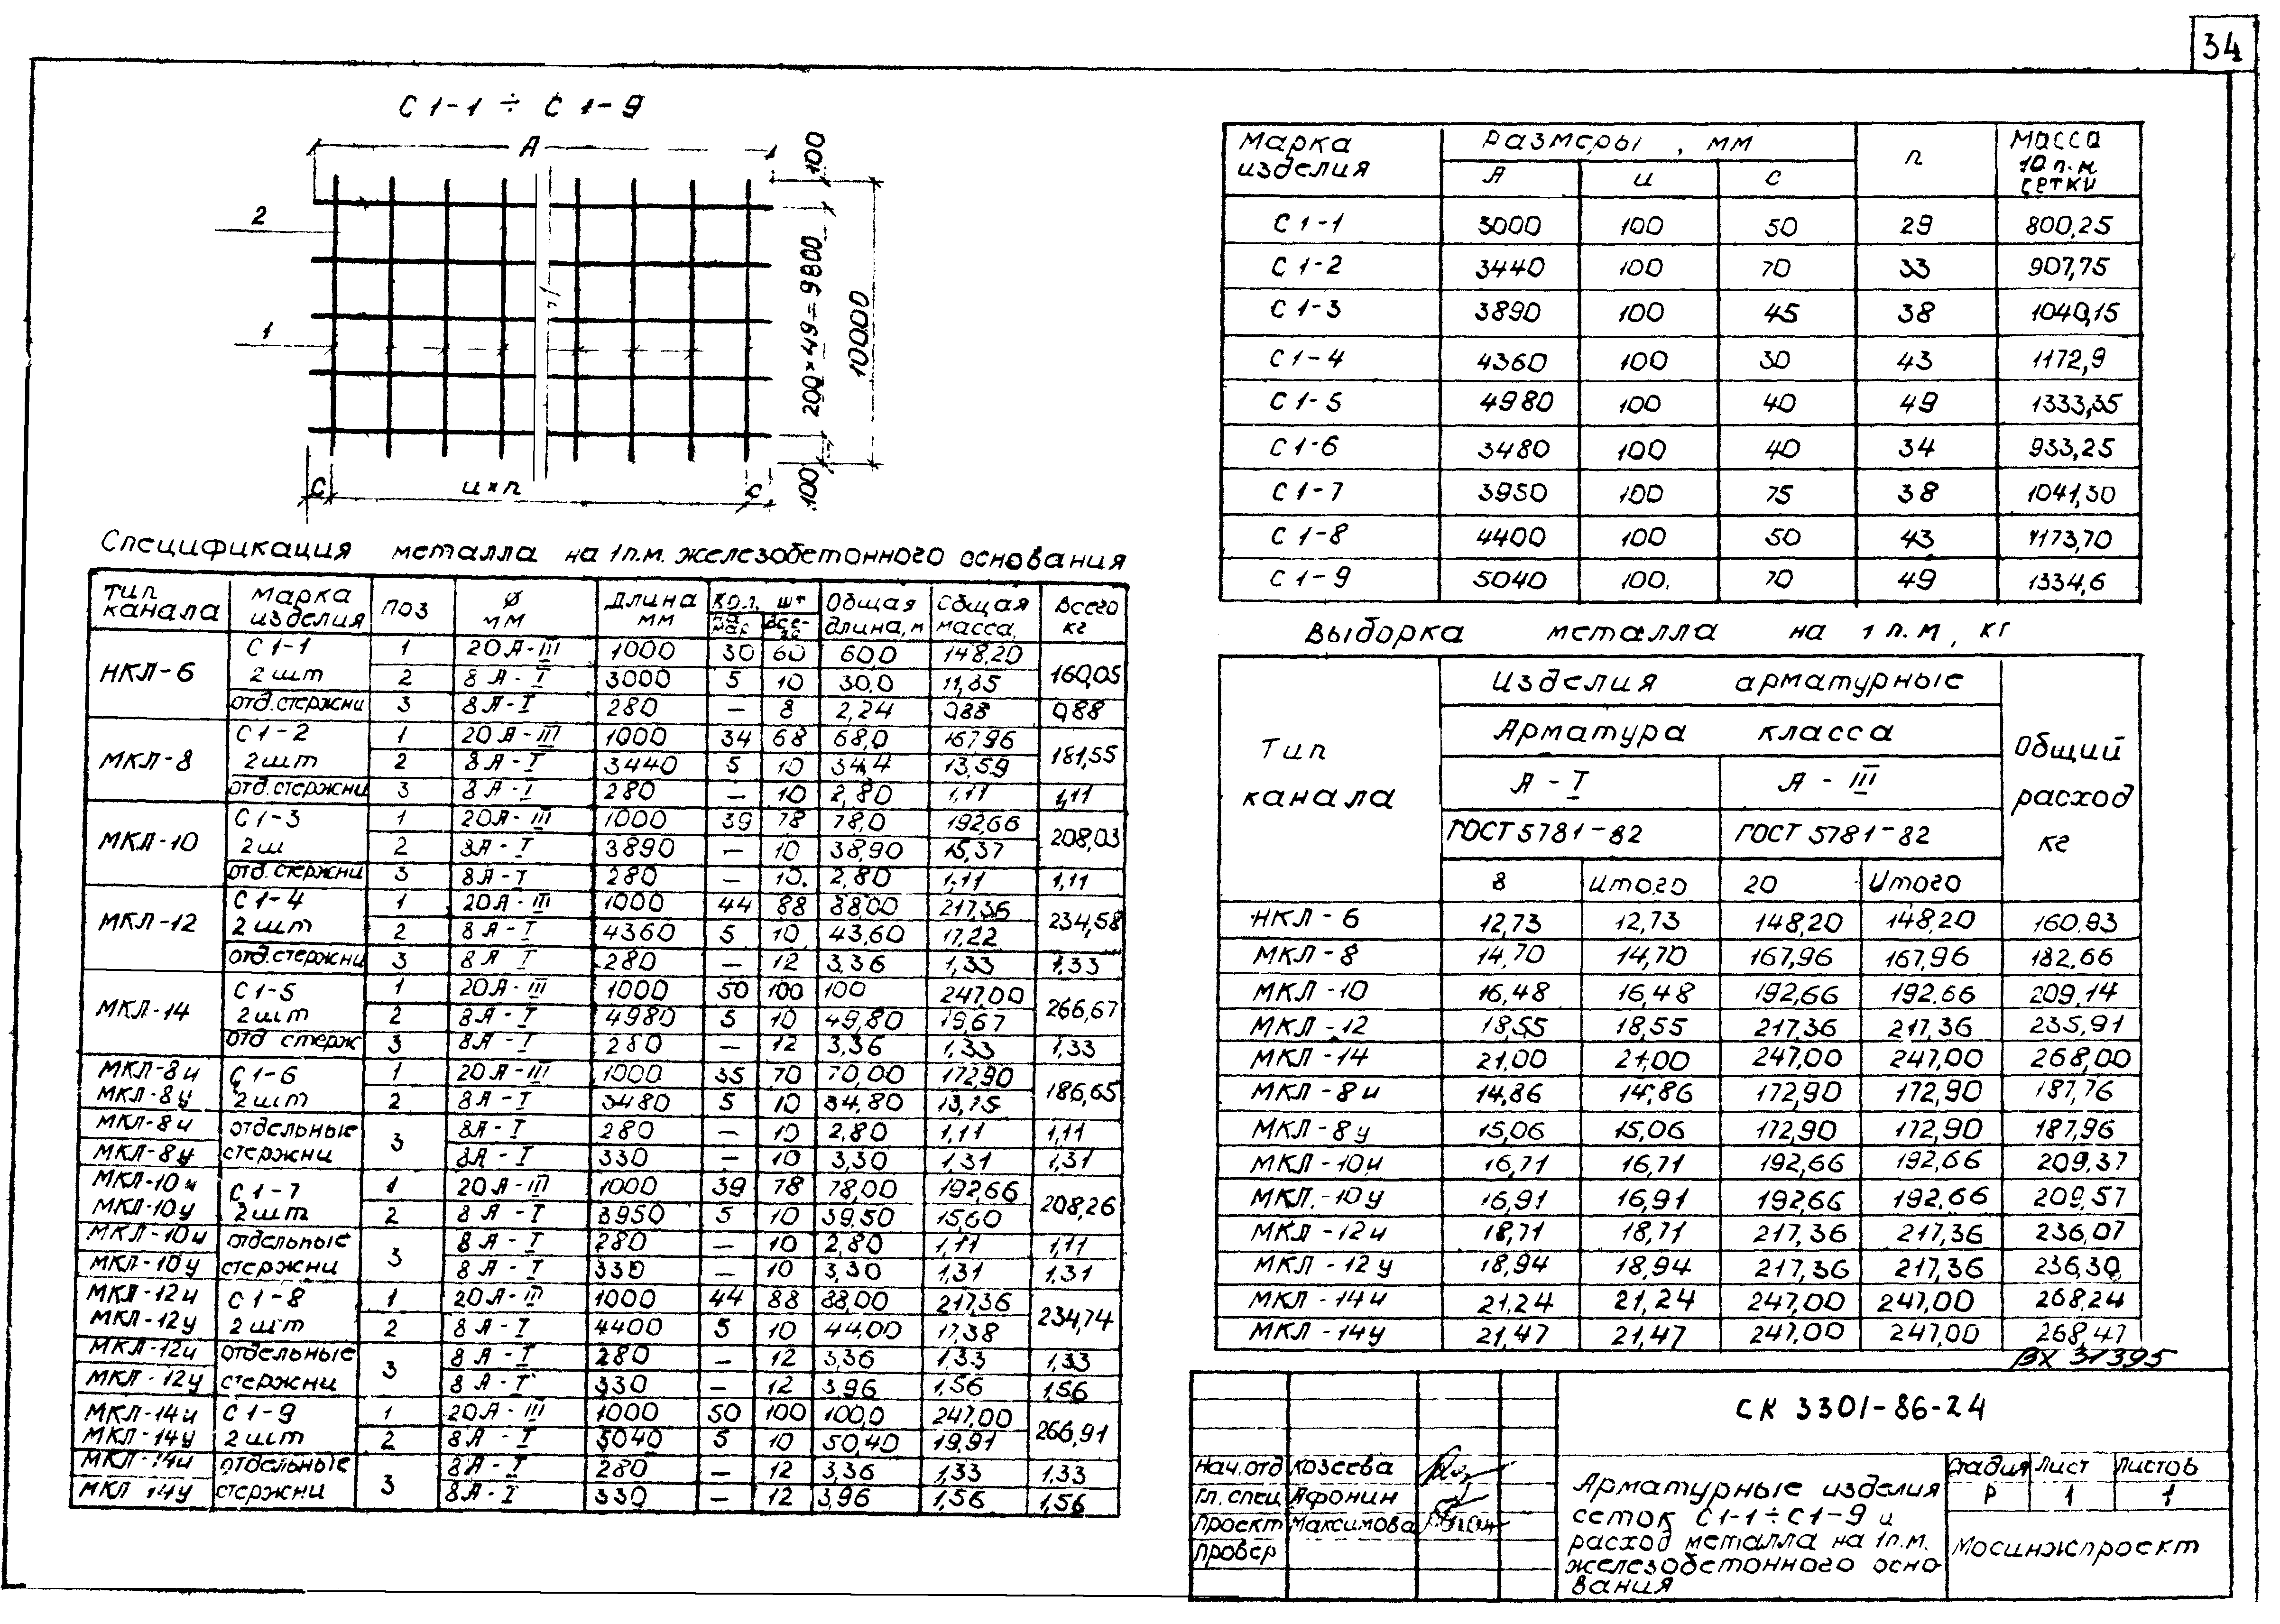 34
С 1-1 ÷ С 1-9
А
100
2
1
200×49=9800
10000
100
С
u×n
С
Марка изделия | Размеры, мм | n | Масса 10 п.м. сетки
А | u | с
С 1-1 | 3000 | 100 | 50 | 29 | 800,25
С 1-2 | 3440 | 100 | 70 | 33 | 907,75
С 1-3 | 3890 | 100 | 45 | 38 | 1040,15
С 1-4 | 4360 | 100 | 30 | 43 | 1172,9
С 1-5 | 4980 | 100 | 40 | 49 | 1333,35
С 1-6 | 3480 | 100 | 40 | 34 | 933,25
С 1-7 | 3950 | 100 | 75 | 38 | 1041,30
С 1-8 | 4400 | 100 | 50 | 43 | 1173,70
С 1-9 | 5040 | 100. | 70 | 49 | 1334,6
Спецификация металла на 1 п.м. железобетонного основания
Тип канала | Марка изделия | поз | Ø мм | Длина мм | Кол. шт | Общая длина, м | Общая масса, | Всего кг
НКЛ-6 | С 1-1 2 шт | 1 | 20 А-III | 1000 | 30 | 60 | 60,0 | 148,20 | 160,05
2 | 8 А-I | 3000 | 5 | 10 | 30,0 | 11,85
отд. стержни | 3 | 8 А-I | 280 | — | 8 | 2,24 | 0,88 | 0,88
МКЛ-8 | С 1-2 2 шт | 1 | 20 А-III | 1000 | 34 | 68 | 68,0 | 167,96 | 181,55
2 | 8 А-I | 3440 | 5 | 10 | 34,4 | 13,59
отд. стержни | 3 | 8 А-I | 280 | — | 10 | 2,80 | 1,11 | 1,11
МКЛ-10 | С 1-3 2 ш | 1 | 20А-III | 1000 | 39 | 78 | 78,0 | 192,66 | 208,03
2 | 8А-I | 3890 | — | 10 | 38,90 | 15,37
отд. стержни | 3 | 8А-I | 280 | — | 10. | 2,80 | 1,11 | 1,11
МКЛ-12 | С 1-4 2 шт | 1 | 20А-III | 1000 | 44 | 88 | 88,00 | 217,36 | 234,58
2 | 8 А-I | 4360 | 5 | 10 | 43,60 | 17,22
отд. стержни | 3 | 8 А I | 280 | — | 12 | 3,36 | 1,33 | 1,33
МКЛ-14 | С 1-5 2 шт | 1 | 20А-III | 1000 | 50 | 100 | 100 | 247,00 | 266,67
2 | 8А-I | 4980 | 5 | 10 | 49,80 | 19,67
отд стерж | 3 | 8А-I | 280 | — | 12 | 3,36 | 1,33 | 1,33
МКЛ-8и МКЛ-8у | С 1-6 2 шт | 1 | 20 А-III | 1000 | 35 | 70 | 70,00 | 172,90 | 186,65
2 | 8А-I | 3480 | 5 | 10 | 34,80 | 13,75
МКЛ-8и | отдельные | 3 | 8А-I | 280 | — | 10 | 2,80 | 1,11 | 1,11
МКЛ-8у | стержни | 8А-I | 330 | — | 10 | 3,30 | 1,31 | 1,31
МКЛ-10и МКЛ-10у | С 1-7 2 шт | 1 | 20 А-III | 1000 | 39 | 78 | 78,00 | 192,66 | 208,26
2 | 8 А-I | 3950 | 5 | 10 | 39,50 | 15,60
МКЛ-10и | отдельные | 3 | 8 А-I | 280 | — | 10 | 2,80 | 1,11 | 1,11
МКЛ-10у | стержни | 8 А-I | 330 | — | 10 | 3,30 | 1,31 | 1,31
МКЛ-12и МКЛ-12у | С 1-8 2 шт | 1 | 20 А-III | 1000 | 44 | 88 | 88,00 | 217,36 | 234,74
2 | 8 А-I | 4400 | 5 | 10 | 44,00 | 17,38
МКЛ-12и | отдельные | 3 | 8 А-I | 280 | — | 12 | 3,36 | 1,33 | 1,33
МКЛ-12у | стержни | 8 А-I | 330 | — | 12 | 3,96 | 1,56 | 1,56
МКЛ-14и МКЛ-14у | С 1-9 2 шт | 1 | 20А-III | 1000 | 50 | 100 | 100,0 | 247,00 | 266,91
2 | 8А-I | 5040 | 5 | 10 | 50,40 | 19,91
МКЛ-14и | отдельные | 3 | 8А-I | 280 | — | 12 | 3,36 | 1,33 | 1,33
МКЛ 14у | стержни | 8А-I | 330 | — | 12 | 3,96 | 1,56 | 1,56
Выборка металла на 1 п.м, кг
Тип канала | Изделия арматурные | Общий расход кг
Арматура класса
А-I | А-III
ГОСТ 5781-82 | ГОСТ 5781-82
8 | Итого | 20 | Итого
НКЛ-6 | 12,73 | 12,73 | 148,20 | 148,20 | 160,93
МКЛ-8 | 14,70 | 14,70 | 167,96 | 167,96 | 182,66
МКЛ-10 | 16,48 | 16,48 | 192,66 | 192,66 | 209,14
МКЛ-12 | 18,55 | 18,55 | 217,36 | 217,36 | 235,91
МКЛ-14 | 21,00 | 21,00 | 247,00 | 247,00 | 268,00
МКЛ-8и | 14,86 | 14,86 | 172,90 | 172,90 | 187,76
МКЛ-8у | 15,06 | 15,06 | 172,90 | 172,90 | 187,96
МКЛ-10и | 16,71 | 16,71 | 192,66 | 192,66 | 209,37
МКЛ-10у | 16,91 | 16,91 | 192,66 | 192,66 | 209,57
МКЛ-12и | 18,71 | 18,71 | 217,36 | 217,36 | 236,07
МКЛ-12у | 18,94 | 18,94 | 217,36 | 217,36 | 236,30
МКЛ-14и | 21,24 | 21,24 | 247,00 | 247,00 | 268,24
МКЛ-14у | 21,47 | 21,47 | 247,00 | 247,00 | 268,47
ВХ 31395
СК 3301-86-24
Нач.отд Козеева
Гл. спец Афонин
Проект Максимова
Провер
Арматурные изделия
сеток С1-1÷С1-9 и
расход металла на 1п.м.
железобетонного осно
вания
Стадия Лист Листов
Р 1 1
Мосинжпроект